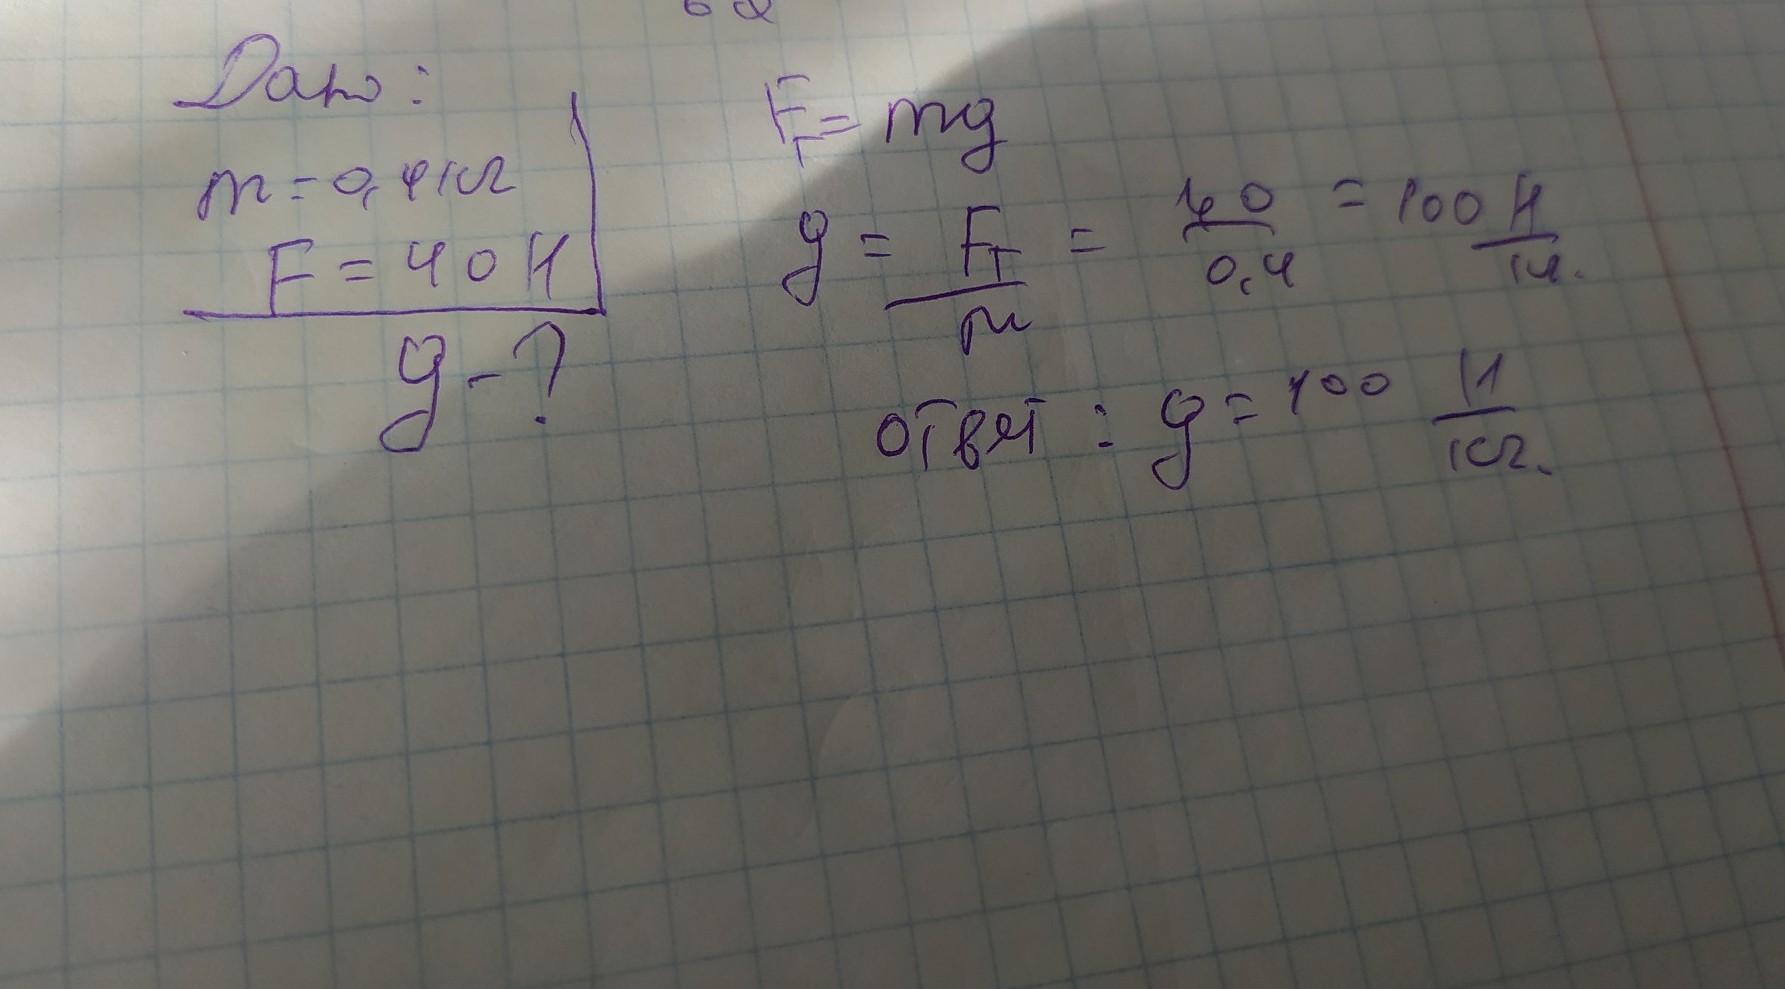 Дано:
m = 0,4 кг
F = 40 Н
g - ?
Fт = mg
g = Fт/m = 40/0,4 = 100 Н/кг.
ответ : g = 100 Н/кг.